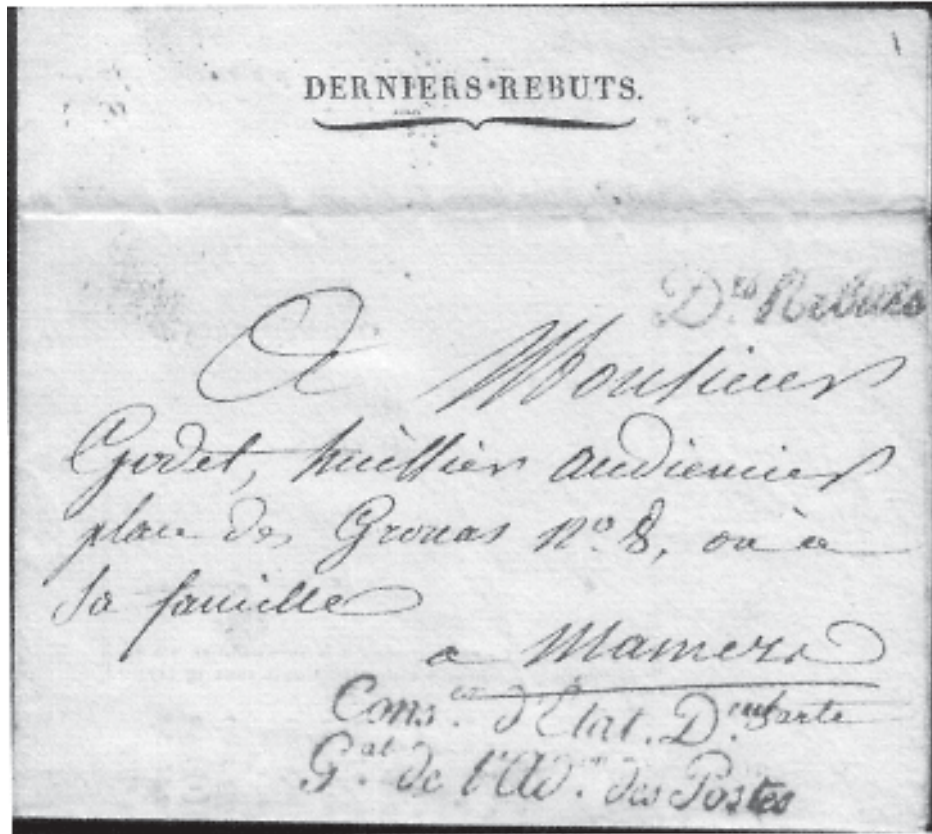 DERNIERS REBUTS.
D.es Rebuts
A Monsieur
Godet, huissier audiencier
place des Grouas n.o 8, ou à
sa famille
a Mamers
Sarte
Cons.er d'Etat. D.eur
G.al de l'Ad.on des Postes